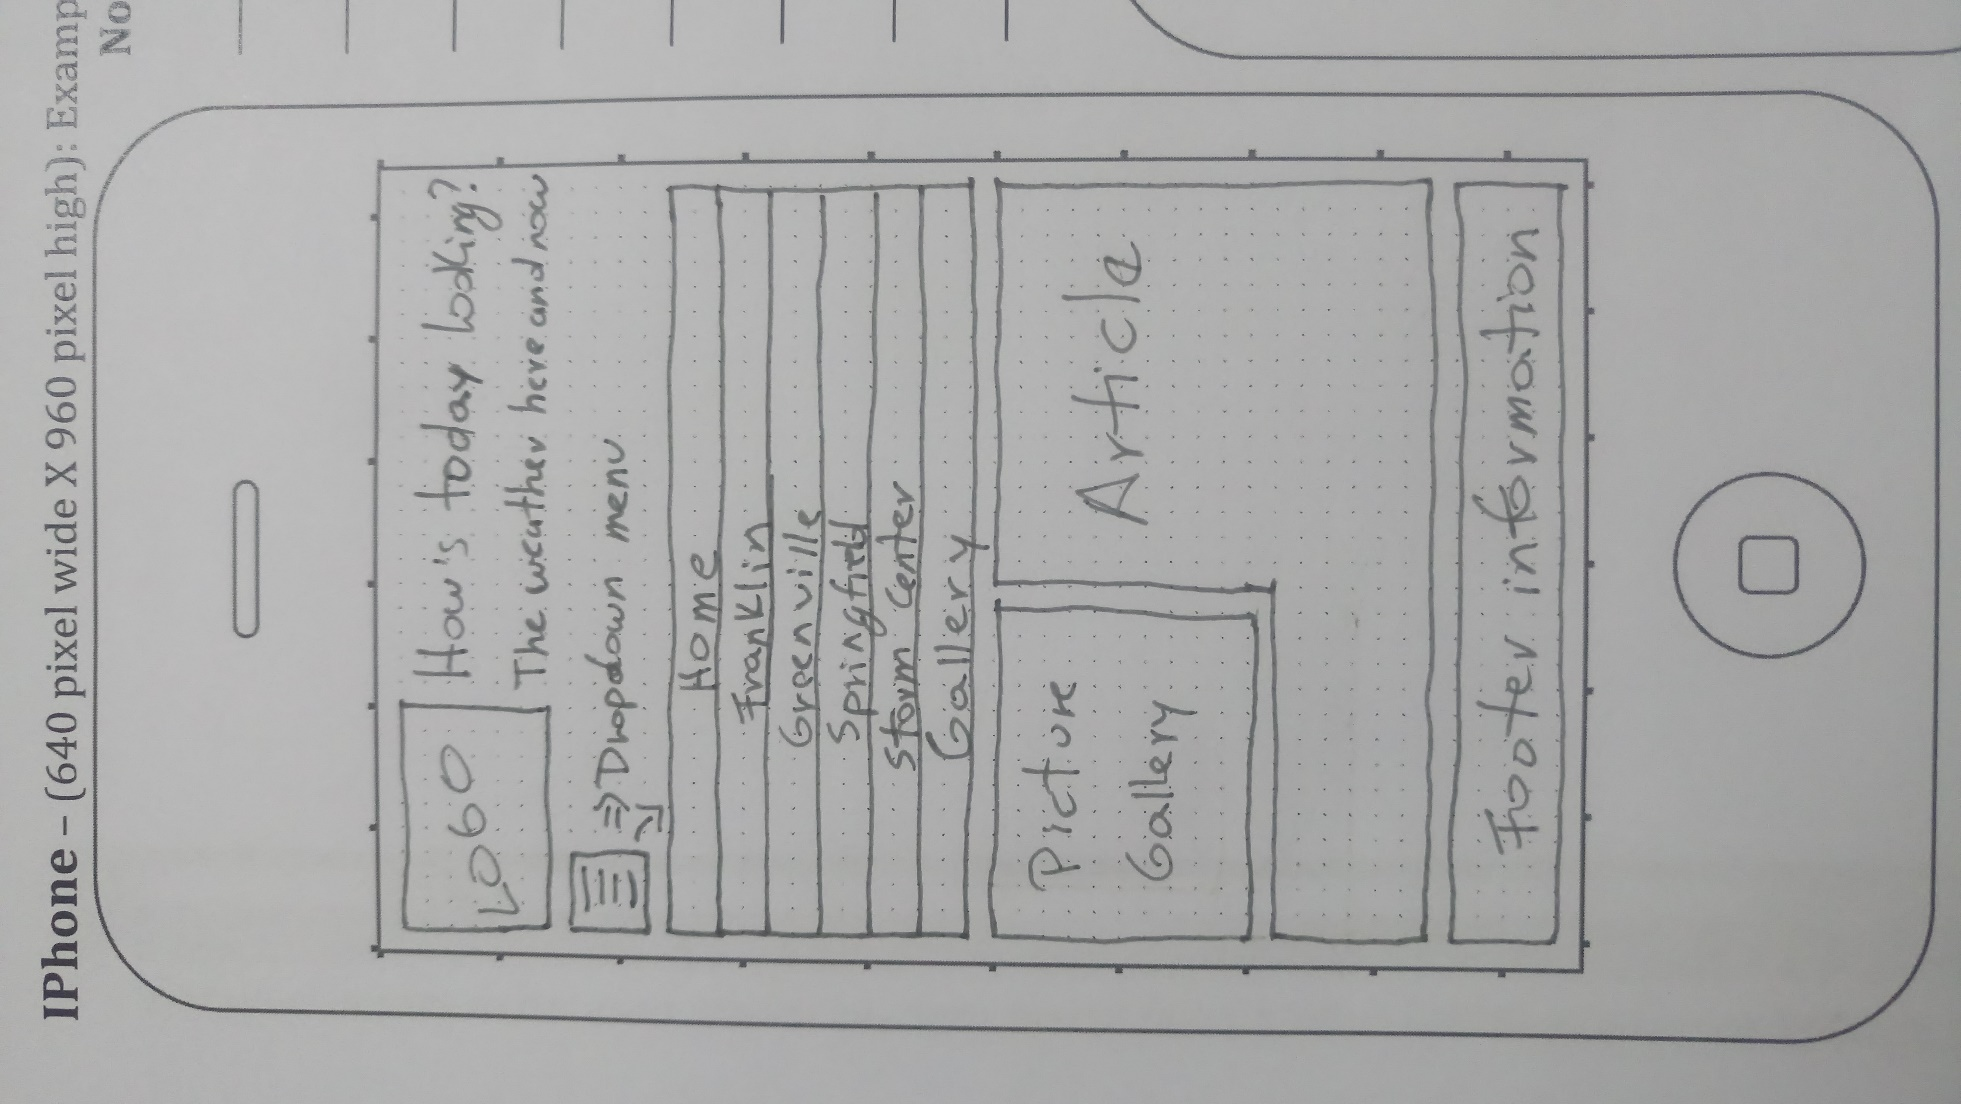 IPhone – (640 pixel wide X 960 pixel high): Examp
No
LOGO
How's today looking?
The weather here and now
⇒Dropdown menu
Home
Franklin
Greenville
Springfield
Storm Center
Gallery
Picture
Gallery
Article
Footer information